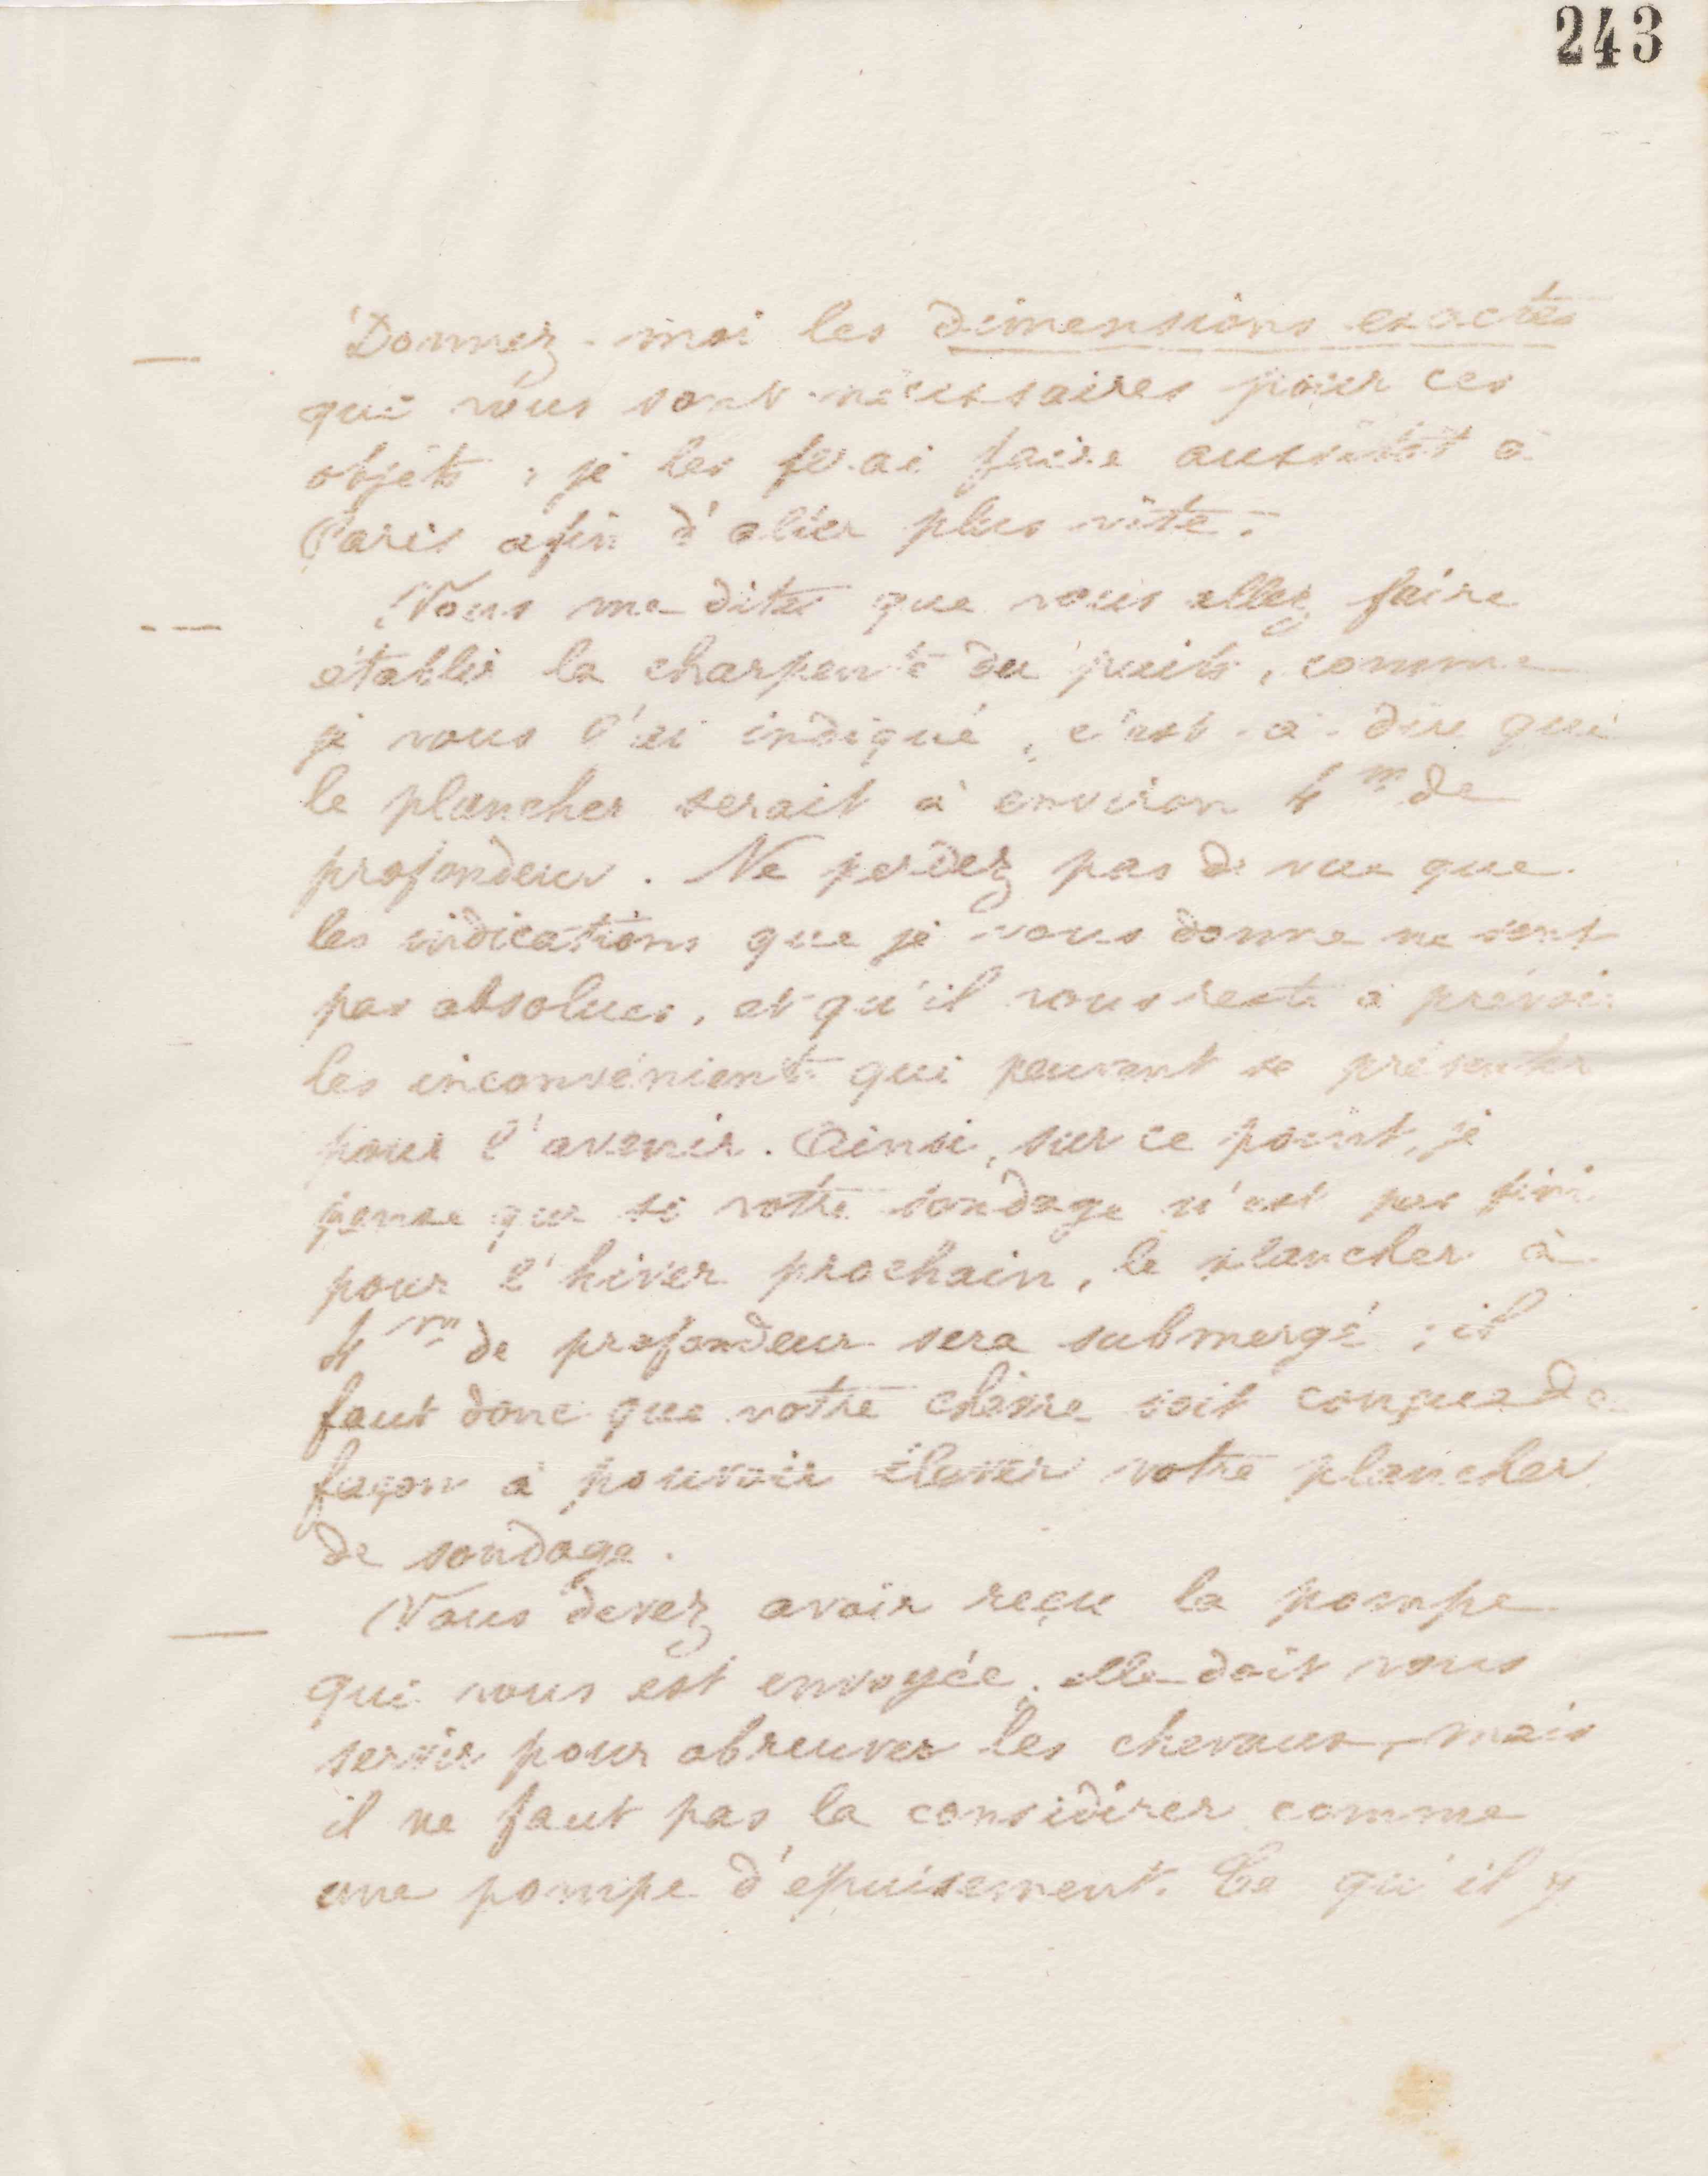 243
Donnez-moi les dimensions exactes
qui vous sont nécessaires pour ces
objets ; je les ferai faire aussitôt à
Paris afin d'aller plus vite.
Vous me dites que vous allez faire
établir la charpente du puits, comme
je vous l'ai indiqué, c'est-à-dire que
le plancher serait à environ 4 m de
profondeur. Ne perdez pas de vue que
les indications que je vous donne ne sont
pas absolues, et qu'il vous reste à prévoir
les inconvénients qui peuvent se présenter
pour l'avenir. Ainsi, sur ce point, je
pense que si votre sondage n'est pas fini
pour l'hiver prochain, le plancher à
4 m de profondeur sera submergé ; il
faut donc que votre chèvre soit conçue de
façon à pouvoir élever votre plancher
de sondage.
Vous devez avoir reçu la pompe
qui vous est envoyée. elle doit vous
servir pour abreuver les chevaux, mais
il ne faut pas la considérer comme
une pompe d'épuisement. Ce qu'il y